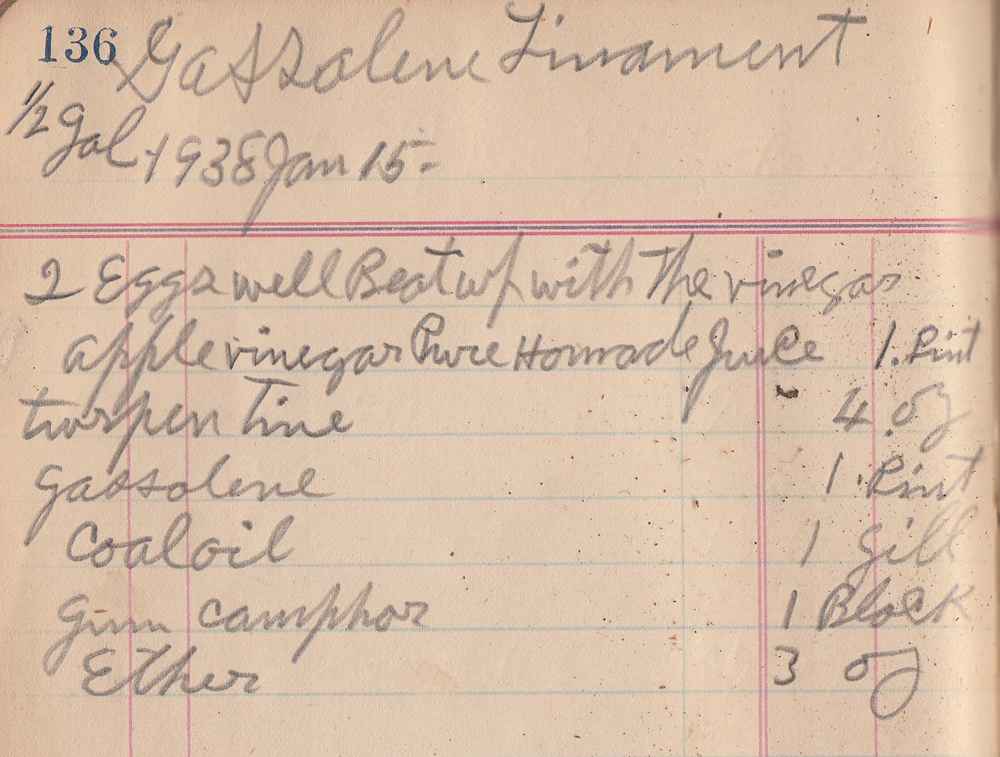 136 Gassolene Linament
1/2 gal 1938 Jan 15-
2 Eggs well Beat up with The vinegar
apple vinegar Pure Homade Juice 1. Pint
turpen Tine 4 oz
gassolene 1 Pint
Coal oil 1 gill
gum camphor 1 Block
Ether 3 oz